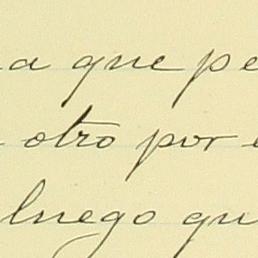 a que pe
otro por
luego qu